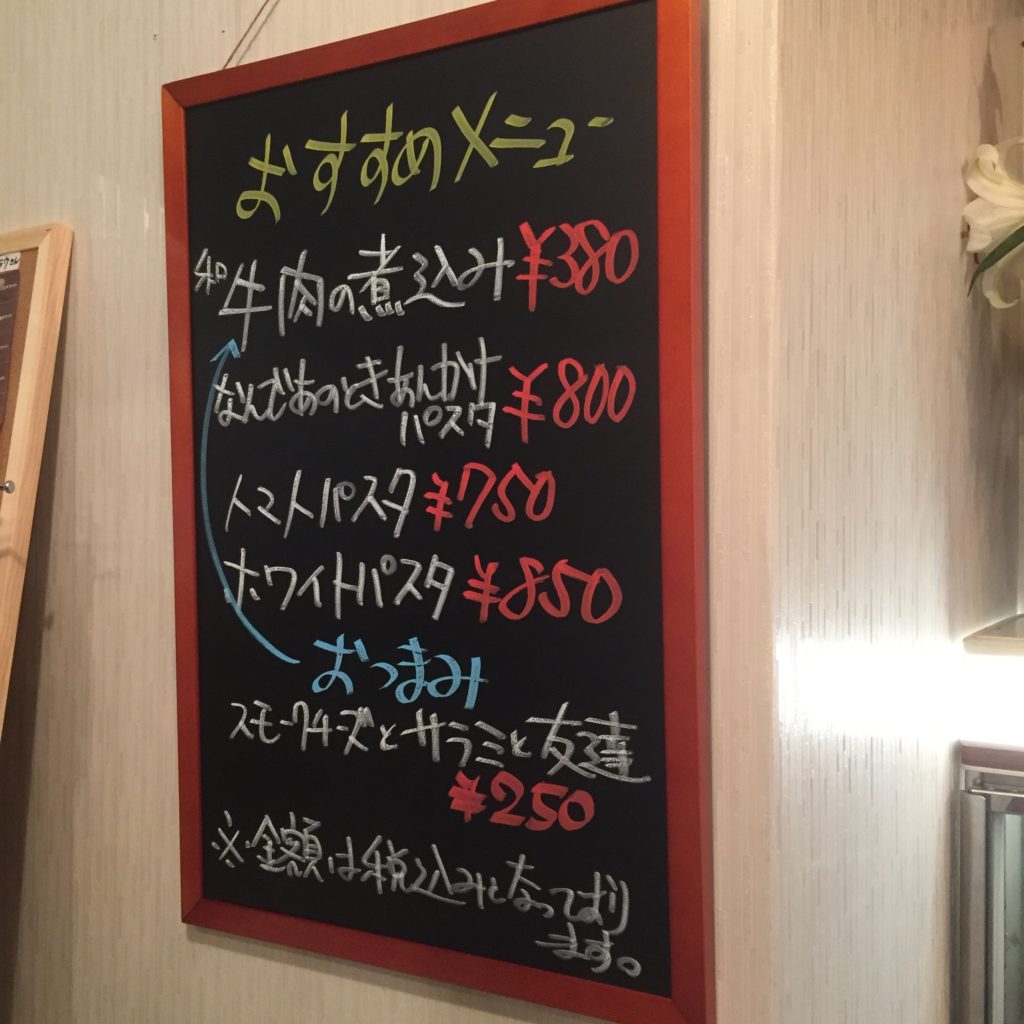 おすすめメニュー
和牛肉の煮込み ¥380
なんであのときあんかけ
パスタ ¥800
トマトパスタ ¥750
ホワイトパスタ ¥850
おつまみ
スモークチーズとサラミと友達
¥250
※金額は税込みになっており
ます。